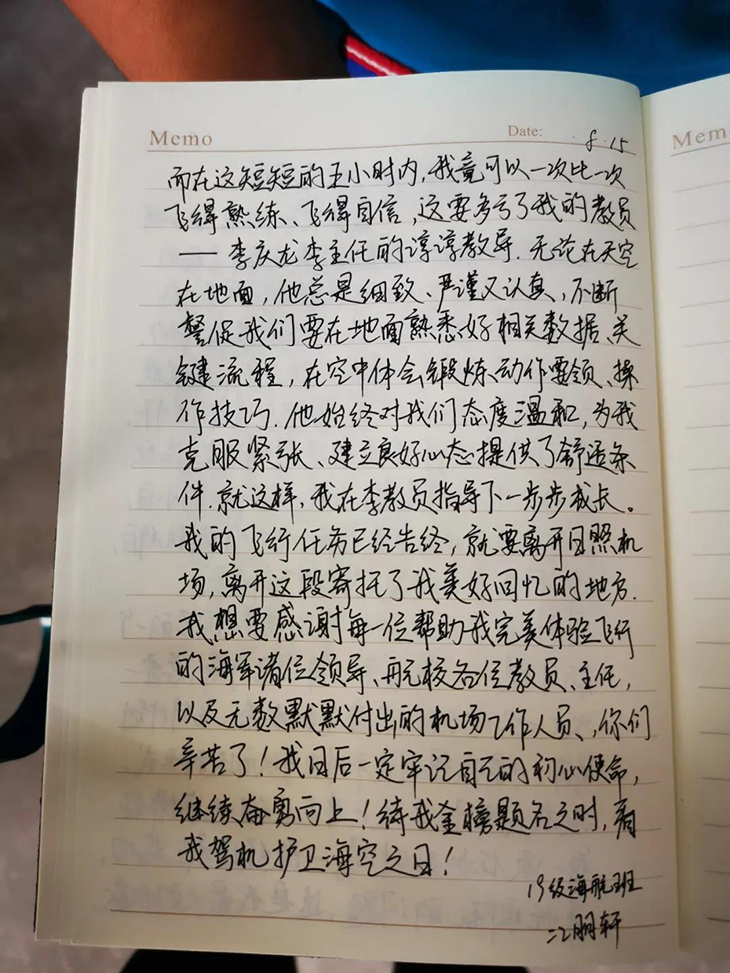 Memo
Date: 8.15
Mem
而在这短短的五小时内,我竟可以一次比一次
飞得熟练、飞得自信,这要多亏了我的教员
——李庆龙李主任的谆谆教导.无论在天空
在地面,他总是细致、严谨又认真,不断
督促我们要在地面熟悉好相关数据、关
键流程,在空中体会锻炼动作要领、操
作技巧.他始终对我们态度温和,为我
克服紧张、建立良好心态提供了舒适条
件.就这样,我在李教员指导下一步步成长。
我的飞行任务已经告终,就要离开日照机
场,离开这段寄托了我美好回忆的地方.
我想要感谢每一位帮助我完美体验飞行
的海军诸位领导、航校各位教员、主任,
以及无数默默付出的机场工作人员、,你们
辛苦了!我日后一定牢记自己的初心使命,
继续奋勇向上!待我金榜题名之时,看
我驾机护卫海空之日!
19级海航班
江鹏轩